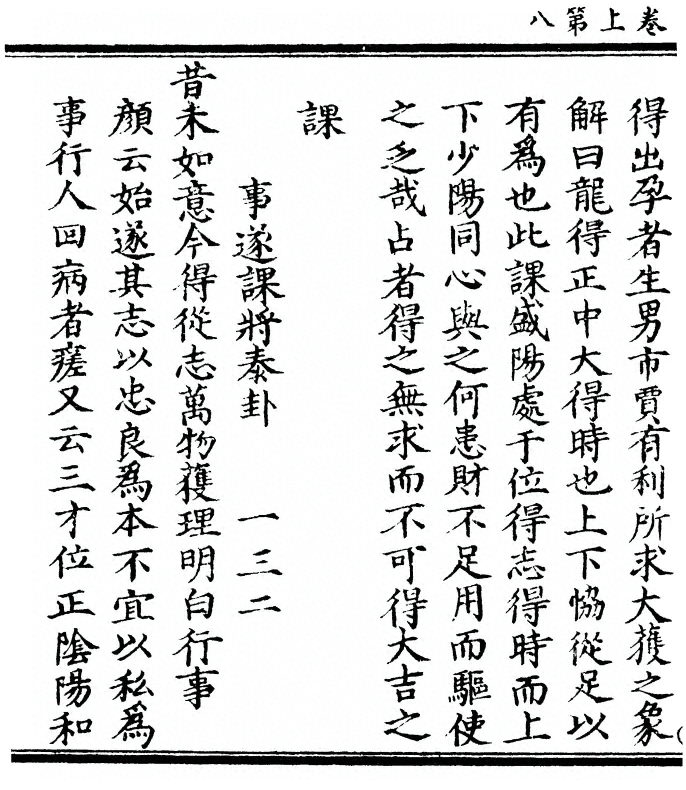 卷上第八
得出孕者生男市賈有利所求大獲之象
解曰龍得正中大得時也上下恊從足以
有爲也此課盛陽處于位得志得時而上
下少陽同心與之何患財不足用而驅使
之乏哉占者得之無求而不可得大吉之
課
事遂課將泰卦 一三二
昔未如意今得從志萬物獲理明白行事
顔云始遂其志以忠良爲本不宜以私爲
事行人回病者瘥又云三才位正陰陽和